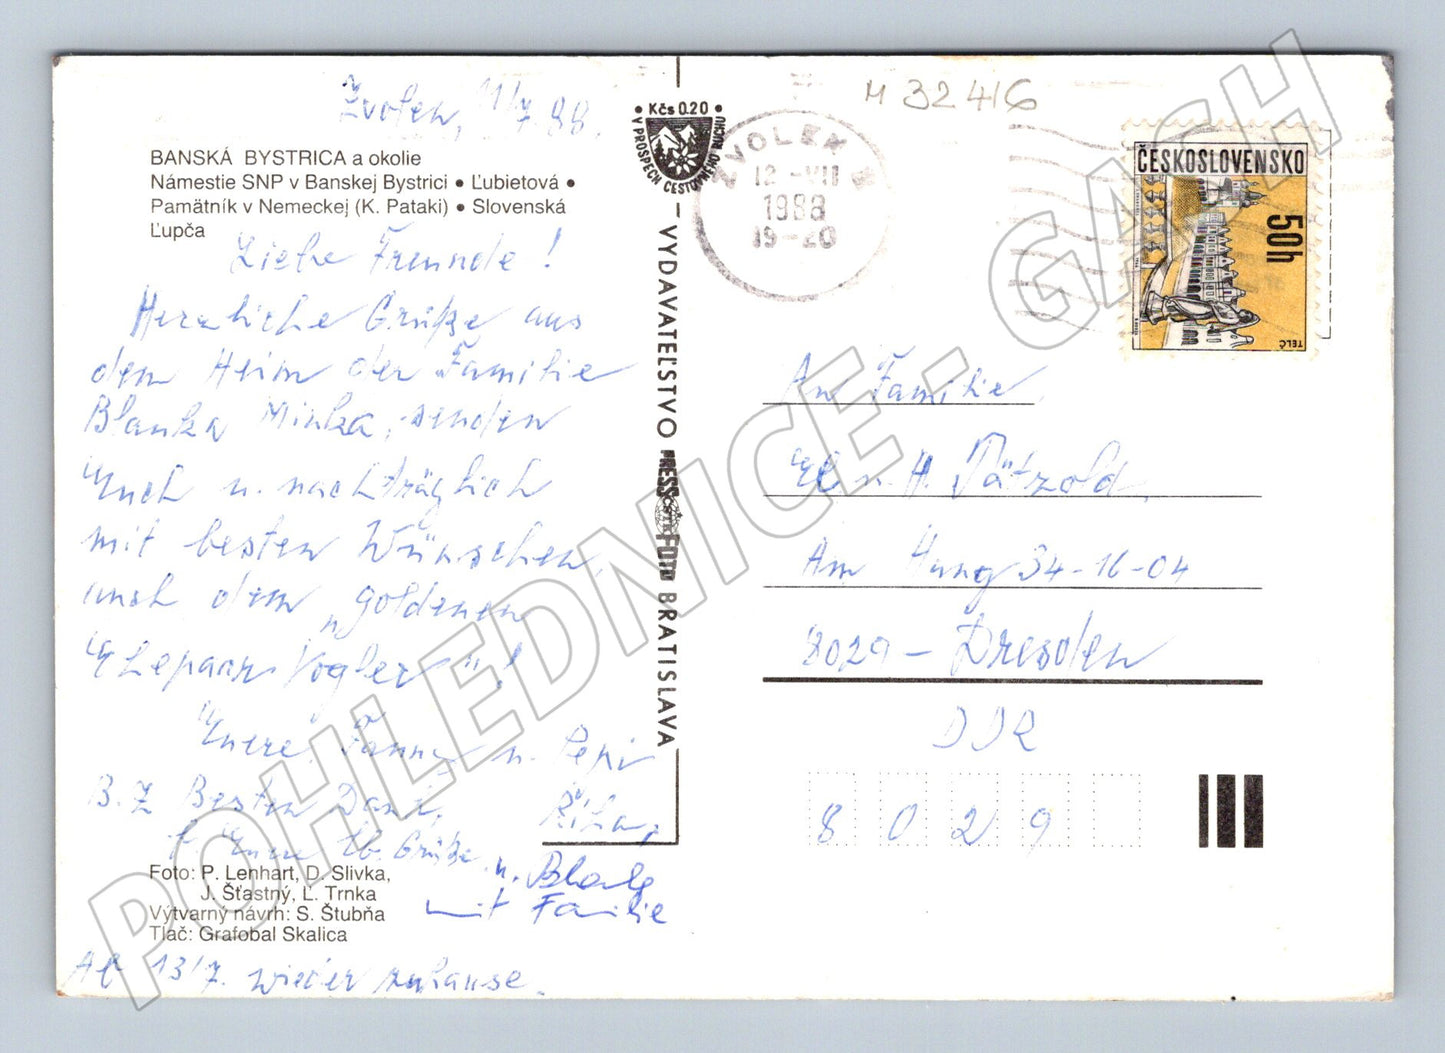 Zvolen, 11/7. 88.
BANSKÁ BYSTRICA a okolie
Námestie SNP v Banskej Bystrici • Ľubietová •
Pamätník v Nemeckej (K. Pataki) • Slovenská
Ľupča
Liebe Freunde!
Herzliche Grüße aus
dem Heim der Familie
Blanka Minka, senden
Euch u. nachträglich
mit besten Wünschen,
auch dem „goldenen
Ehepaar Vogler"!
Euere Fanny u. Pepi
B. Z Besten Dank,
Euere Grüße u.
mit Familie
Foto: P. Lenhart, D. Slivka,
J. Šťastný, Ľ. Trnka
Výtvarný návrh: S. Štubňa
Tlač: Grafobal Skalica
Ab 13/7. wieder zuhause.
• Kčs 0.20 •
V PROSPECH CESTOVNÉHO RUCHU
VYDAVATEĽSTVO PRESSFOTO BRATISLAVA
ČSTK
ZVOLEN
12.-VII
1988
19-20
M 32416
ČESKOSLOVENSKO
50h
TELČ
An Familie
E. u. H. Pätzold
Am Hang 34-16-04
8029 - Dresden
DDR
8 0 2 9
POHLEDNICE - GASH